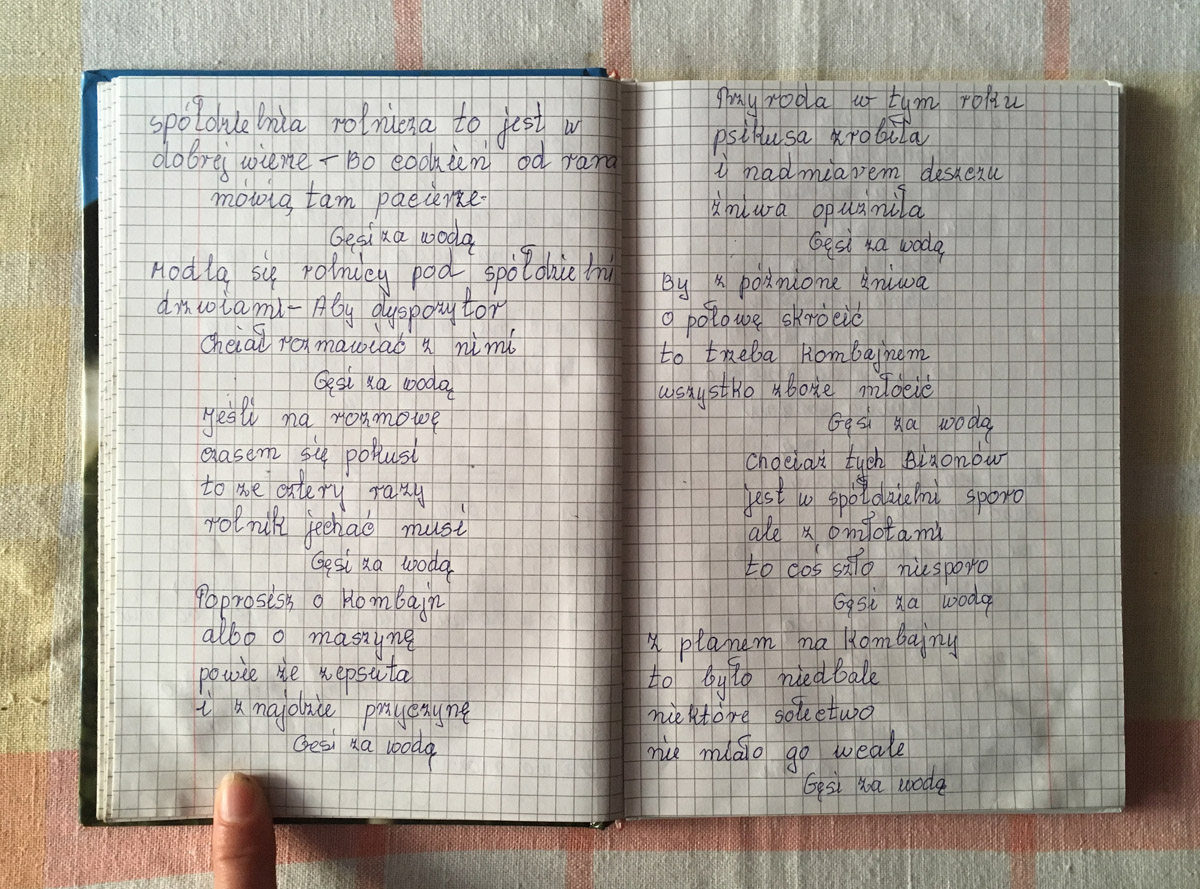 spółdzielnia rolnicza to jest w
dobrej wierze - Bo codzień od rana
mówią tam pacierze-
Gęsi za wodą
Modlą się rolnicy pod spółdzielni
drzwiami - Aby dyspozytor
chciał rozmawiać z nimi
Gęsi za wodą
Jeśli na rozmowę
czasem się pokusi
to ze cztery razy
rolnik jechać musi
Gęsi za wodą
Poprosisz o kombajn
albo o maszynę
powie że zepsuta
i znajdzie przyczynę
Gęsi za wodą
Przyroda w tym roku
psikusa zrobiła
i nadmiarem deszczu
żniwa opuźniła
Gęsi za wodą
By z późnione żniwa
o połowę skrócić
to trzeba kombajnem
wszystko zboże młócić
Gęsi za wodą
chociaż tych Bizonów
jest w spółdzielni sporo
ale z omłotami
to coś szło niesporo
Gęsi za wodą
z planem na kombajny
to było niedbale
niektóre sołectwo
nie miało go wcale
Gęsi za wodą